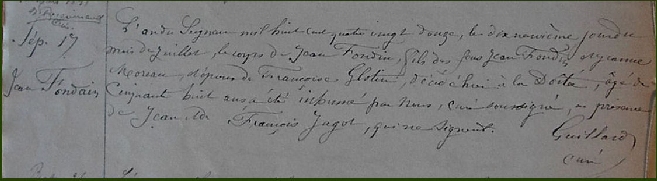 Sép. 17
Jean Fondain
L'an du Seigneur mil huit cent quatre vingt douze, le dixneuvième jour du
mois de Juillet, le corps de Jean Fondin, fils des feus Jean Fondin et Jeanne
Moreau, époux de Françoise Glotin, décédé hier à la , âgé de
Cinquant huit ans a été inhumé par Nous, curé soussigné, en présence
de Jean, de François Jugot, qui ne signent.
Guillard
curé